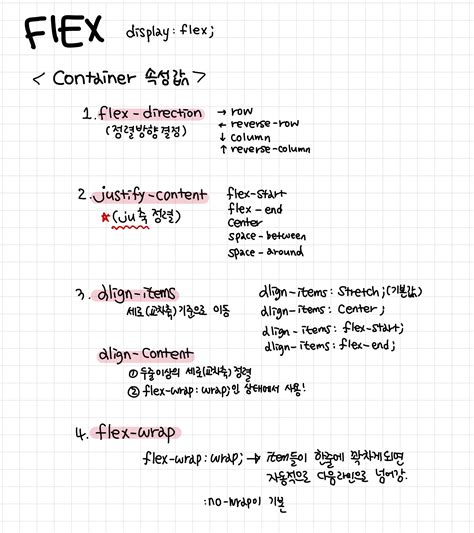 FlEX display: flex;
< Container 속성값 >
1. flex-direction → row
(정렬방향 결정) ← reverse-row
↓ column
↑ reverse-column
2. justify-content flex-start
★(ju축 정렬) flex-end
center
space-between
space-around
3. align-items align-items: Stretch;(기본값)
세로(교차축)기준으로 이동 align-items: Center;
align-items: flex-start;
align-items: flex-end;
align-Content
① 두줄이상의 세로(교차축) 정렬
② flex-wrap: wrap;인 상태에서 사용!
4. flex-wrap
flex-wrap: wrap; → item들이 한줄에 꽉차게되면
자동적으로 다음라인으로 넘어감.
:no-wrap이 기본